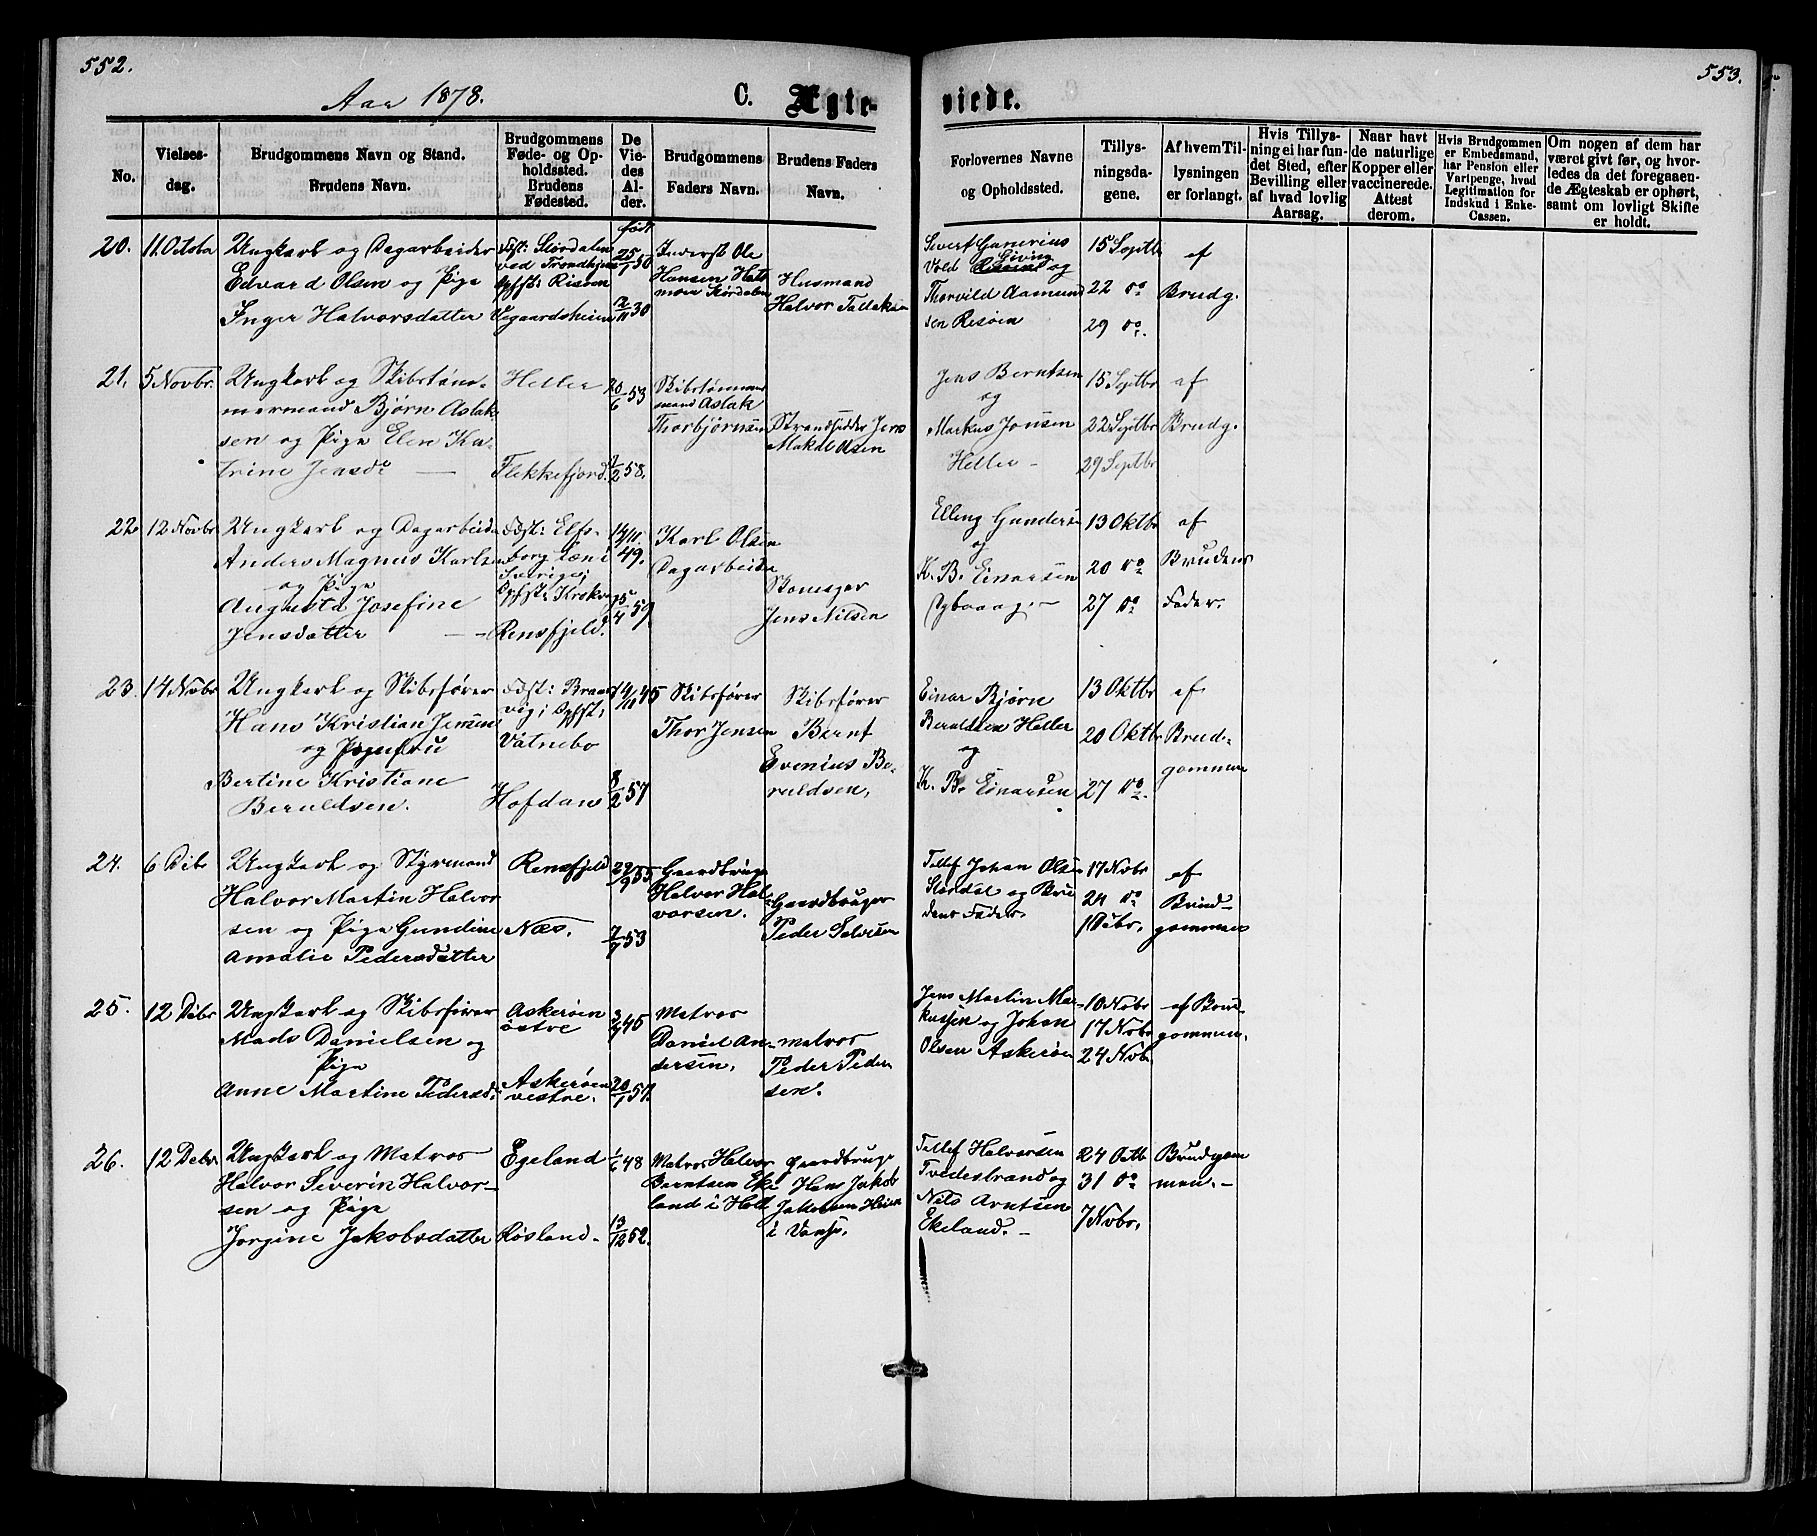 552.
553.
Aar 1878.
C. Ægte-
viede.
No.
Vielses-
dag.
Brudgommens Navn og Stand.
Brudens Navn.
Brudgommens
Føde- og Op-
holdssted.
Brudens
Fødested.
De
Vie-
des
Al-
der.
Brudgommens
Faders Navn.
Brudens Faders
Navn.
Forlovernes Navne
og Opholdssted.
Tillys-
ningsda-
gene.
Af hvem Til-
lysningen
er forlangt.
Hvis Tillys-
ning ei har fun-
det Sted, efter
Bevilling eller
af hvad lovlig
Aarsag.
Naar havt
de naturlige
Kopper eller
vaccinerede.
Attest
derom.
Hvis Brudgommen
er Embedsmand,
har Pension eller
Vartpenge, hvad
Legitimation for
Indskud i Enke-
Cassen.
Om nogen af dem har
været givt før, og hvor-
ledes da det foregaaen-
de Ægteskab er ophørt,
samt om lovligt Skifte
er holdt.
født
20. 11 Octobr
Ungkarl og Dagarbeider
Edvard Olsen og Pige
Inger Halvorsdatter
Født: Størdalen
ved Trondhjem
Opht: Risøen
Vegaardsheien
25/1 50
2/11 30
Inderst Ole
Hansen
Størdalen
Husmand
Halvor Tallaksen
Sivert Gunerius
Vold Living og
Thorvild Aamund-
sen Risøen
15 Septbr
22 do
29 do.
af
Brudg.
21. 5 Novbr.
Ungkarl og Skibstøm-
mermand Bjørn Aslak-
sen og Pige Elen Ka-
trine Jensdr
Heller
Flekkefjord.
20/6 53
2/2 58.
Skibstømmer-
mand Aslak
Thorbjørnsen
Strandsidder Jens
Olsen
Jens Berntsen
og
Markus Jensen
Heller -
15 Septbr
22 Septbr
29 Septbr
af
Brudg.
22 12 Novbr
Ungkarl og Dagarbeider
Anders Magnus Karlsen
og Pige
Augusta Josefine
Jensdatter
Født: Elfs-
borg Læn i
Sverige;
Opht: Krokvaag
Rensfjeld.
14/11
49.
25/4 57.
Karl Olsen
Dagarbeider
Skomager
Jens Nilsen
Elling Gundersen
og
K. B. Einarsen
13 Oktbr
20 do
27 do
af
Brudens
Fader.
23. 14 Novbr
Ungkarl og Skibsfører
Hans Kristian Jensen
og Jomfru
Bertine Kristiane
Beruldsen.
Født:
Opht:
Vatnebo
Hofdan
14/11 45
8/2 57
Skibsfører
Thor Jensen
Skibsfører
Bernt
Evenius Be-
ruldsen,
Einar Bjørn
Beruldsen Heller
og
K. B. Einarsen
13 Oktbr
20 Oktbr
27 do.
af
Brud-
gommen
24. 6 Dcbr
Ungkarl og Styrmand
Halvor Martin Halvor-
sen og Pige Gundine
Amalie Pedersdatter
Rensfjeld
Næs.
29/9 55
7/7 53
Gaardbruger
Halvor Hal-
vorsen.
Gaardbruger
Peder Salvesen
Tellef Johan Olsen
Stordal og Bru-
dens Fader
17 Novbr
24 do
1 Decbr.
af
Brud-
gommen
25. 12 Dcbr
Ungkarl og Skibsfører
Mads Danielsen og
Pige
Anne Martine Pedersd:
Askerøen
østre
Askerøen
vestre.
3/7 45
20/1 57.
Matros
Daniel An-
dersen,
Matros
Peder Peder-
sen.
Jens Martin Mar-
kussen og Johan
Olsen Askerøen
10 Novbr
17 Novbr
24 Novbr
af Brud-
gommen.
26. 12 Debr
Ungkarl og Matros
Halvor Severin Halvor-
sen og Pige
Jorgine Jakobsdatter
Egeland
Røsland.
1/6 48
13/12 52.
Matros Halvor
Berntsen Eke-
land i Holt
Gaardbruger
Hans Jakob
Jakobsen
i Vansø.
Tellef Halvorsen
Tvedestrand og
Nils Arntsen
Ekeland. -
24 Octb
31 do
7 Nvbr.
Brudgom-
men. -